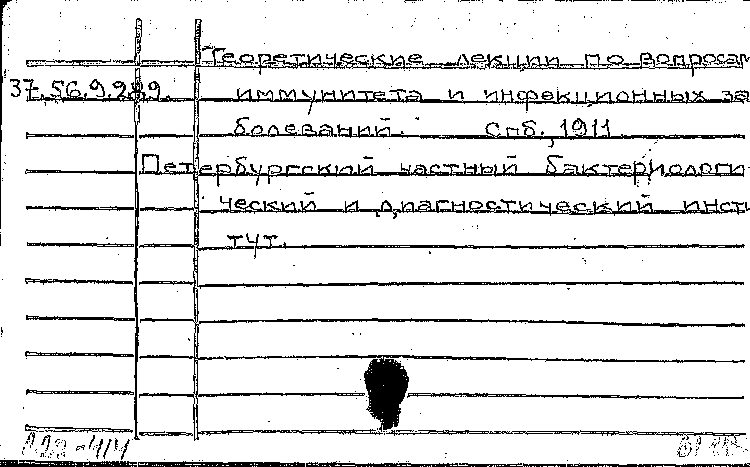 Теоретические лекции по вопросам
37.56.9.289. иммунитета и инфекционных за
болеваний. Спб., 1911.
Петербургский частный бактериологи
ческий и диагностический инсти
тут.